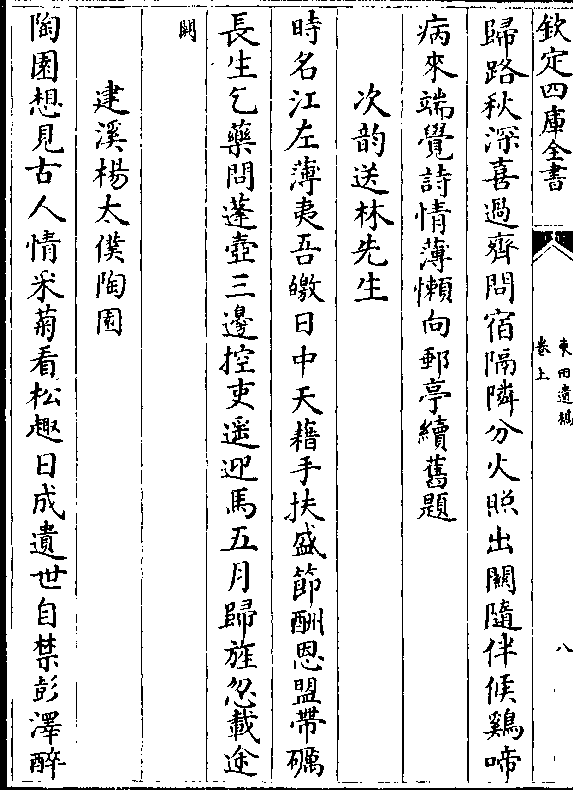 欽定四庫全書
東田遺稿
卷上
八
歸路秋深喜過齊問宿隔隣分火照出關隨伴候鷄啼
病來端覺詩情薄懶向郵亭續舊題
次韵送林先生
時名江左薄夷吾皦日中天藉手扶盛節酬恩盟帶礪
長生乞藥問蓬壺三邊控吏遥迎馬五月歸旌忽載途
闕
建溪楊太僕陶園
陶園想見古人情采菊看松趣日成遺世自禁彭澤醉